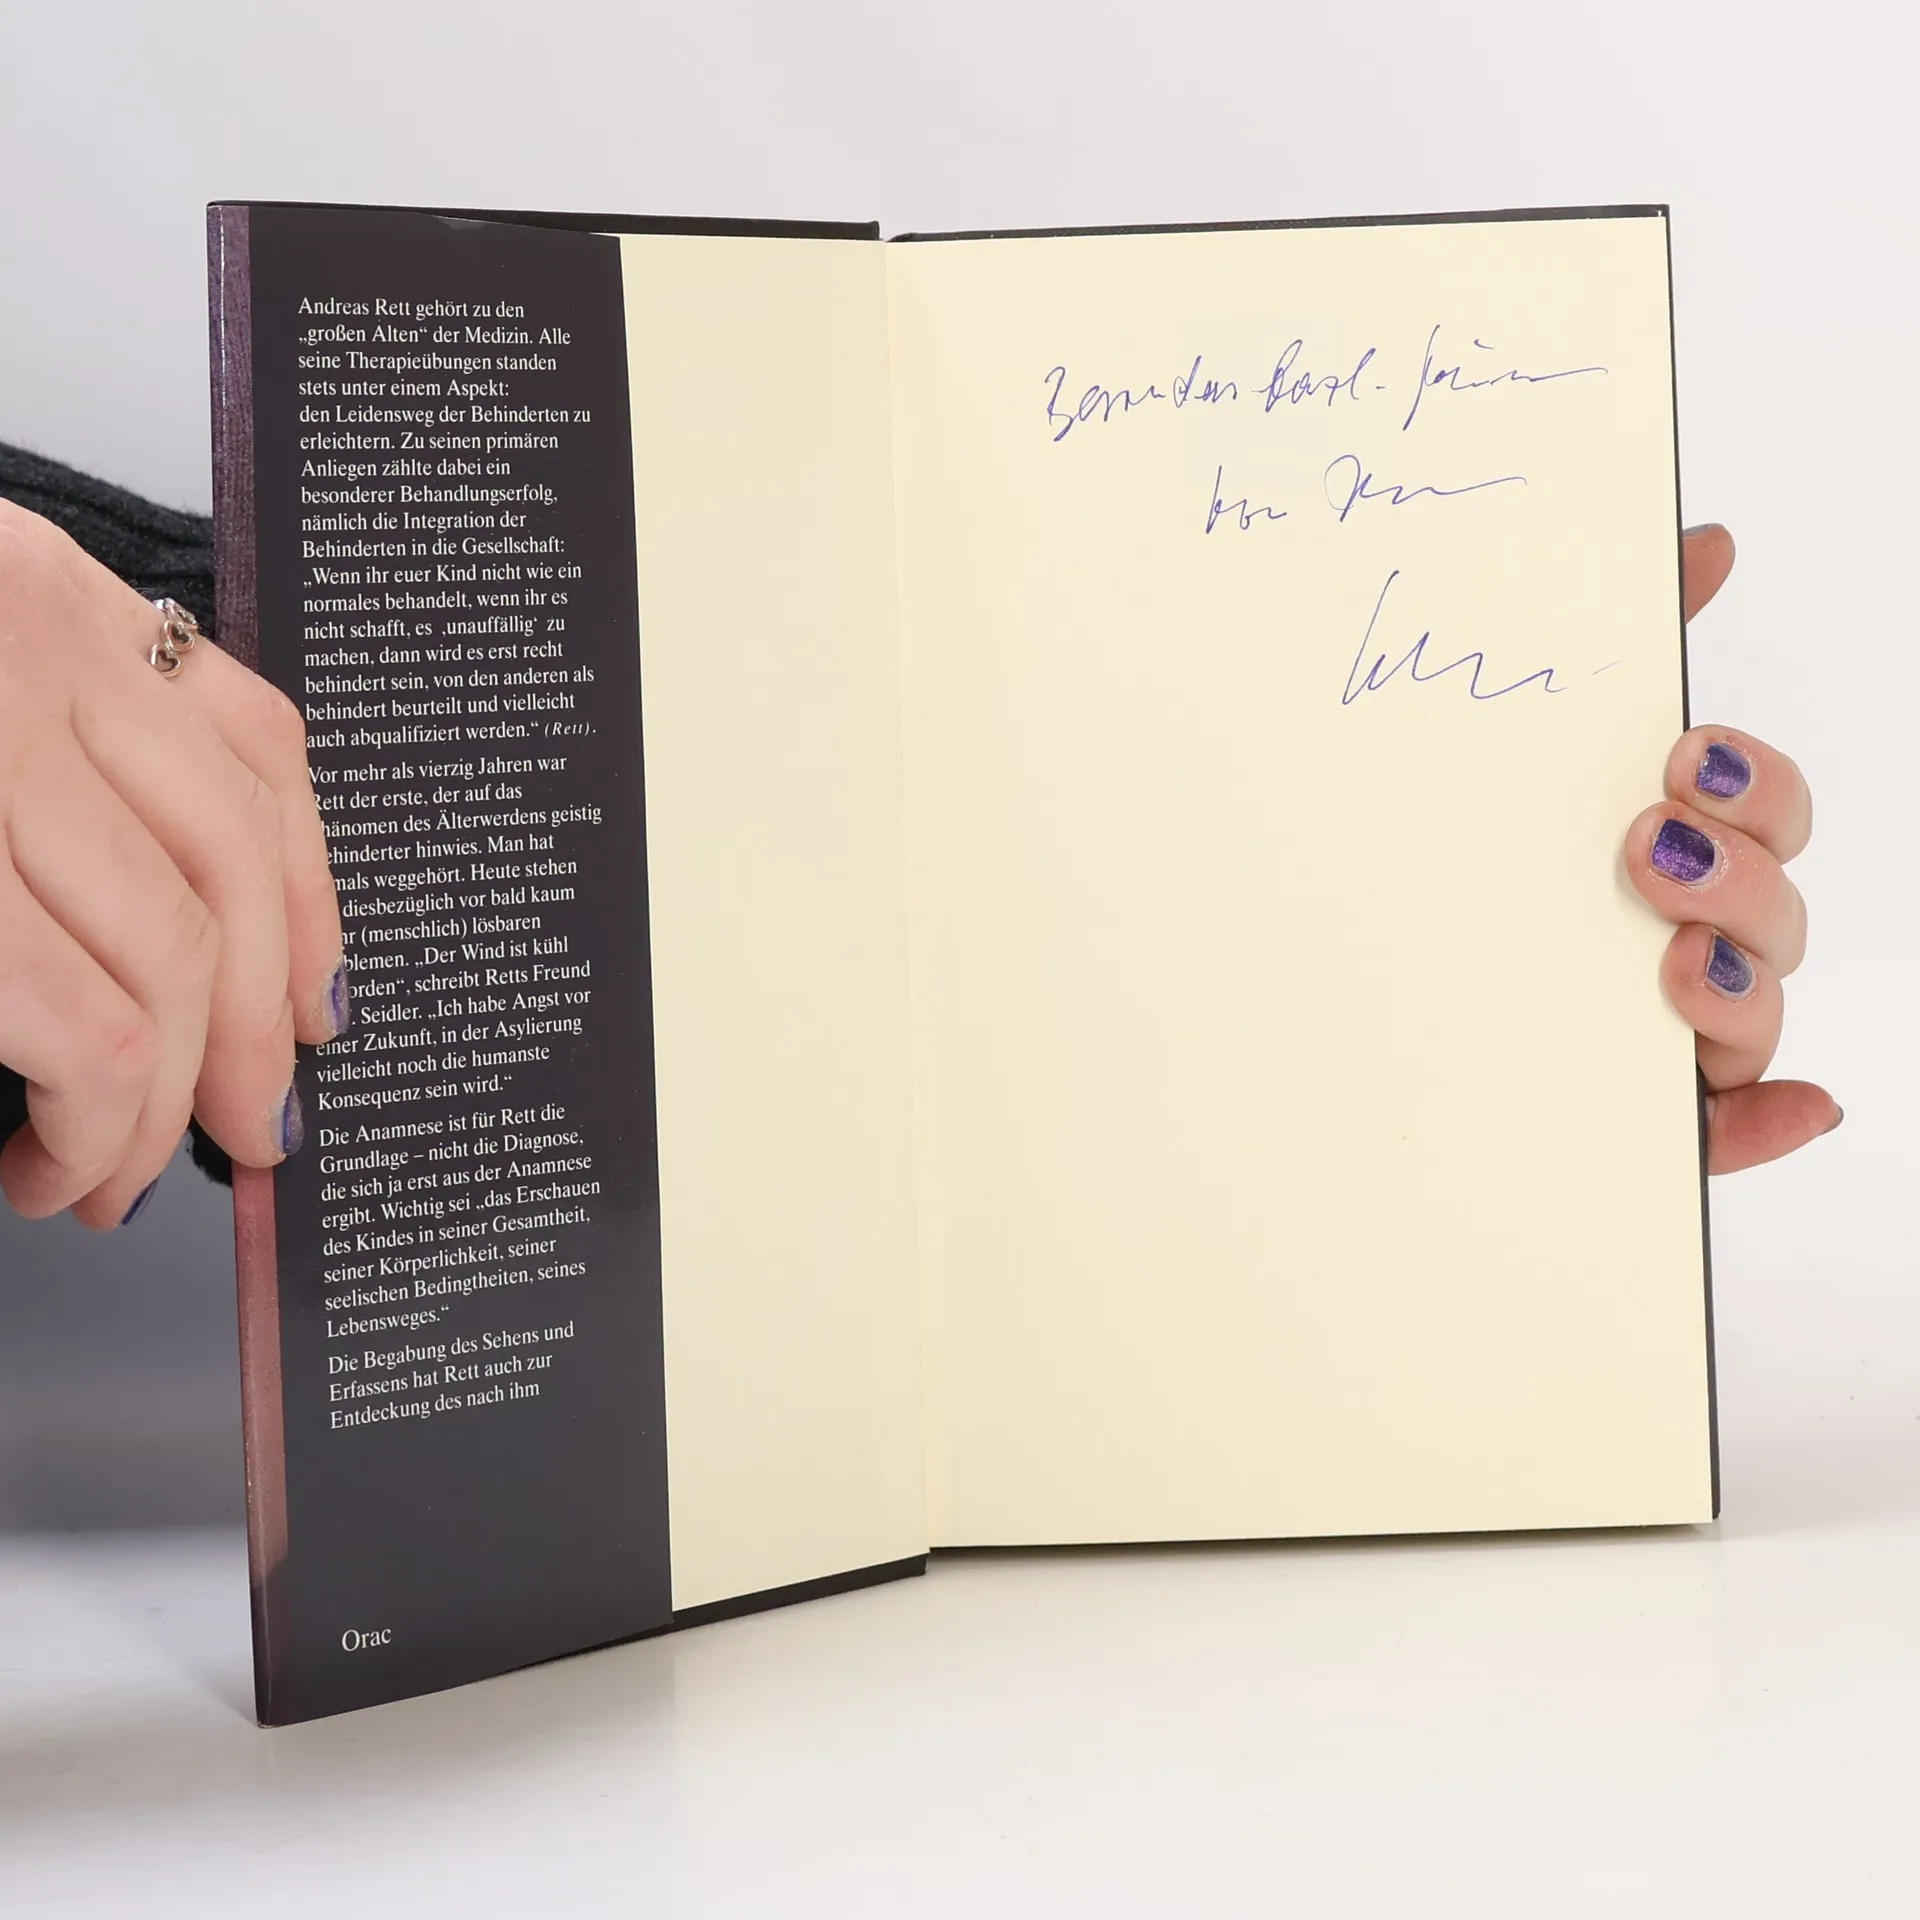 Andreas Rett gehört zu den
„großen Alten“ der Medizin. Alle
seine Therapieübungen standen
stets unter einem Aspekt:
den Leidensweg der Behinderten zu
erleichtern. Zu seinen primären
Anliegen zählte dabei ein
besonderer Behandlungserfolg,
nämlich die Integration der
Behinderten in die Gesellschaft:
„Wenn ihr euer Kind nicht wie ein
normales behandelt, wenn ihr es
nicht schafft, es ‚unauffällig‘ zu
machen, dann wird es erst recht
behindert sein, von den anderen als
behindert beurteilt und vielleicht
auch abqualifiziert werden.“ (Rett).
Vor mehr als vierzig Jahren war
Rett der erste, der auf das
hänomen des Älterwerdens geistig
ehinderter hinwies. Man hat
mals weggehört. Heute stehen
diesbezüglich vor bald kaum
hr (menschlich) lösbaren
blemen. „Der Wind ist kühl
orden“, schreibt Retts Freund
. Seidler. „Ich habe Angst vor
einer Zukunft, in der Asylierung
vielleicht noch die humanste
Konsequenz sein wird.“
Die Anamnese ist für Rett die
Grundlage – nicht die Diagnose,
die sich ja erst aus der Anamnese
ergibt. Wichtig sei „das Erschauen
des Kindes in seiner Gesamtheit,
seiner Körperlichkeit, seiner
seelischen Bedingtheiten, seines
Lebensweges.“
Die Begabung des Sehens und
Erfassens hat Rett auch zur
Entdeckung des nach ihm
Orac